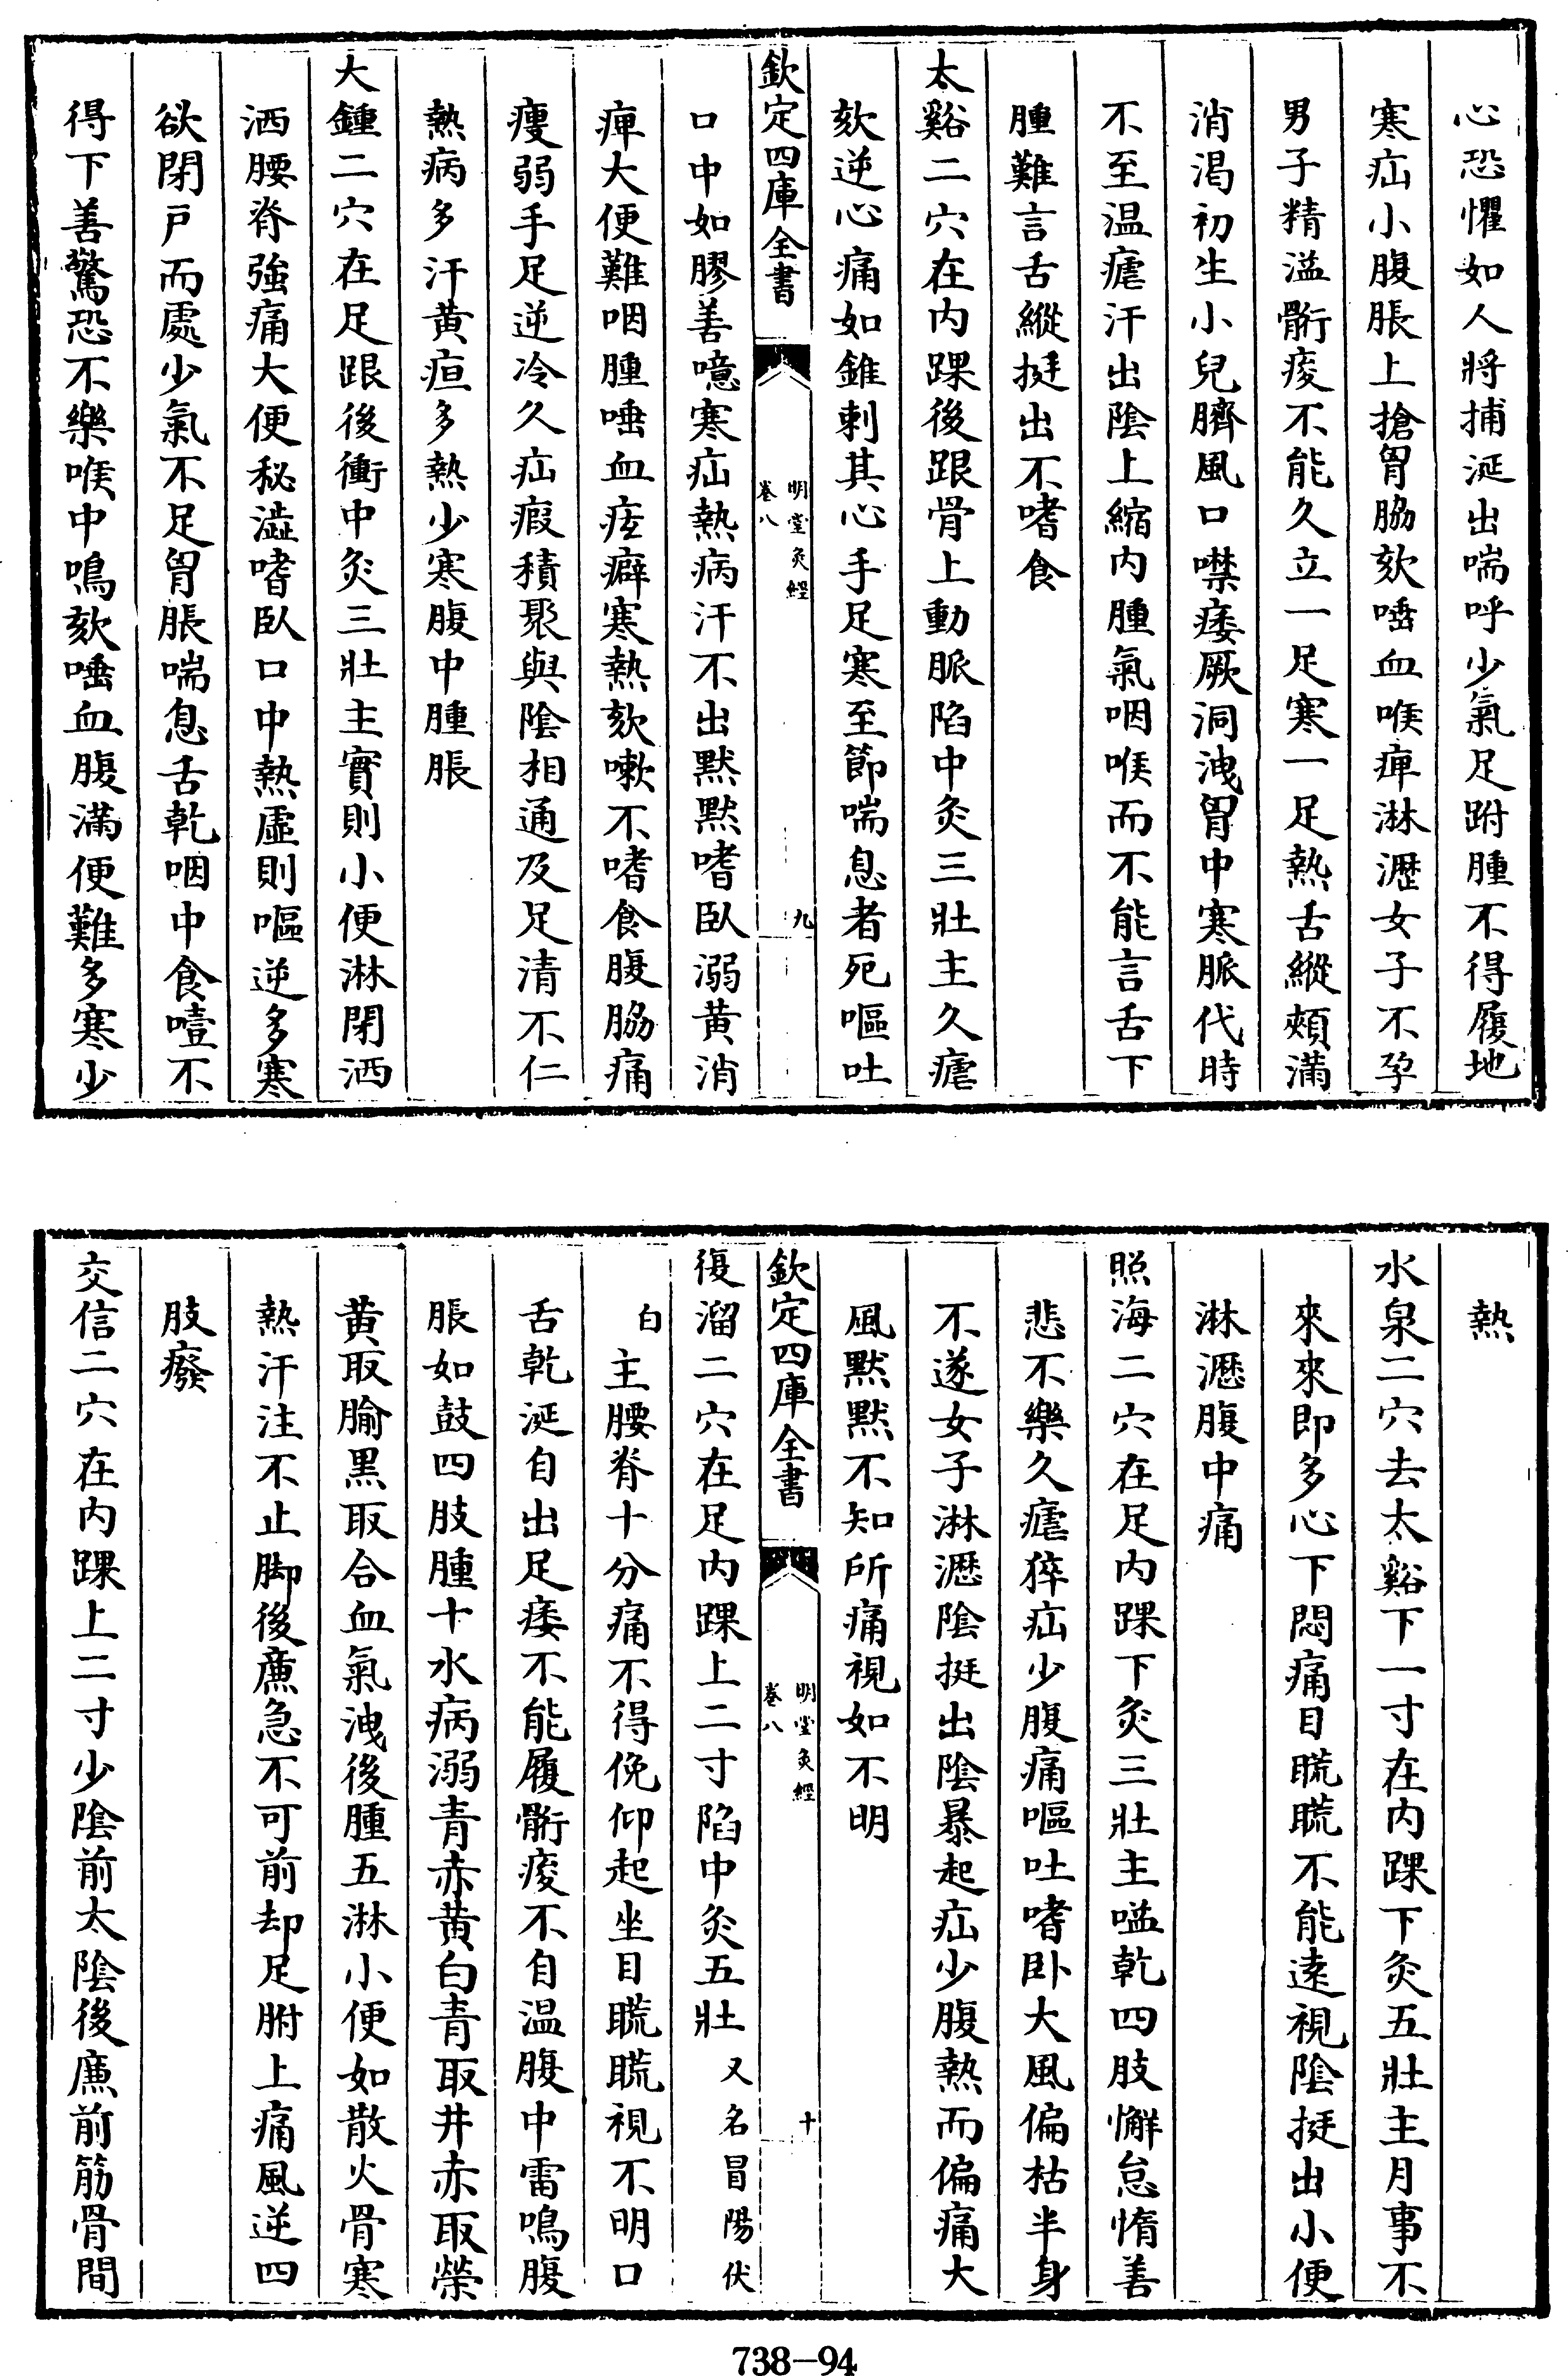 心恐懼如人將捕涎出喘呼少氣足跗腫不得履地
寒疝小腹脹上搶胷脇欬唾血喉痺淋瀝女子不孕
男子精溢䯒痠不能久立一足寒一足熱舌縱頰滿
消渴初生小兒臍風口噤痿厥洞洩胷中寒脈代時
不至温瘧汗出陰上縮内腫氣咽喉而不能言舌下
腫難言舌縱挺出不嗜食
太谿二穴在内踝後跟骨上動脈陷中灸三壯主久瘧
欬逆心痛如錐刺其心手足寒至節喘息者死嘔吐
欽定四庫全書
明堂灸經
卷八
九
口中如膠善噫寒疝熱病汗不出默默嗜臥溺黄消
痺大便難咽腫唾血痃癖寒熱欬嗽不嗜食腹脇痛
痩弱手足逆冷久疝瘕積聚與陰相通及足清不仁
熱病多汗黄疸多熱少寒腹中腫脹
大鍾二穴在足跟後衝中灸三壯主實則小便淋閉洒
洒腰脊強痛大便秘澁嗜臥口中熱虛則嘔逆多寒
欲閉戸而處少氣不足胷脹喘息舌乾咽中食噎不
得下善驚恐不樂喉中鳴欬唾血腹滿便難多寒少
熱
水泉二穴去太谿下一寸在内踝下灸五壯主月事不
來來即多心下悶痛目䀮䀮不能逺視陰挺出小便
淋瀝腹中痛
照海二穴在足内踝下灸三壯主嗌乾四肢懈怠惰善
悲不樂久瘧猝疝少腹痛嘔吐嗜卧大風偏枯半身
不遂女子淋瀝陰挺出陰暴起疝少腹熱而偏痛大
風默默不知所痛視如不明
欽定四庫全書
明堂灸經
卷八
十
復溜二穴在足内踝上二寸陷中灸五壯又名冒陽伏
白主腰脊十分痛不得俛仰起坐目䀮䀮視不明口
舌乾涎自出足痿不能履䯒痠不自温腹中雷鳴腹
脹如鼓四肢腫十水病溺青赤黄白青取井赤取滎
黄取腧黒取合血氣洩後腫五淋小便如散火骨寒
熱汗注不止脚後亷急不可前却足胕上痛風逆四
肢癈
交信二穴在内踝上二寸少陰前太陰後亷前筋骨間
738-94